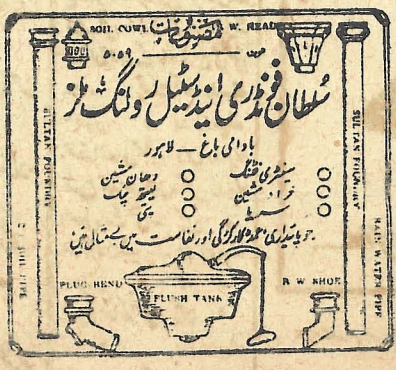 SOIL COWL مصنوعات R. W. HEAD
فون ۵۰۵۹
سُلطان فونڈری اینڈ سٹیل رولنگ ملز
بادامی باغ — لاہور
سینٹری فٹنگ
دھان مشین
خراد مشین
پمپ
جو پائداری عمدہ کارکردگی اور نفاست میں بے مثال ہیں
SULTAN FOUNDRY
SULTAN FOUNDRY
SOIL PIPE
RAIN WATER PIPE
PLUG BEND
FLUSH TANK
R W SHOE